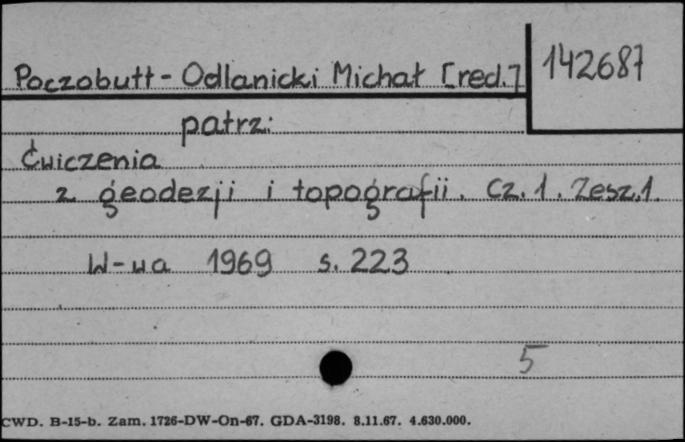 142687
Poczobutt - Odlanicki Michał [red.]
patrz:
Ćwiczenia
z geodezji i topografii. Cz. 1. Zesz. 1.
W-wa 1969 s. 223
5
CWD. B-15-b. Zam. 1726-DW-On-67. GDA-3198. 8.11.67. 4.630.000.